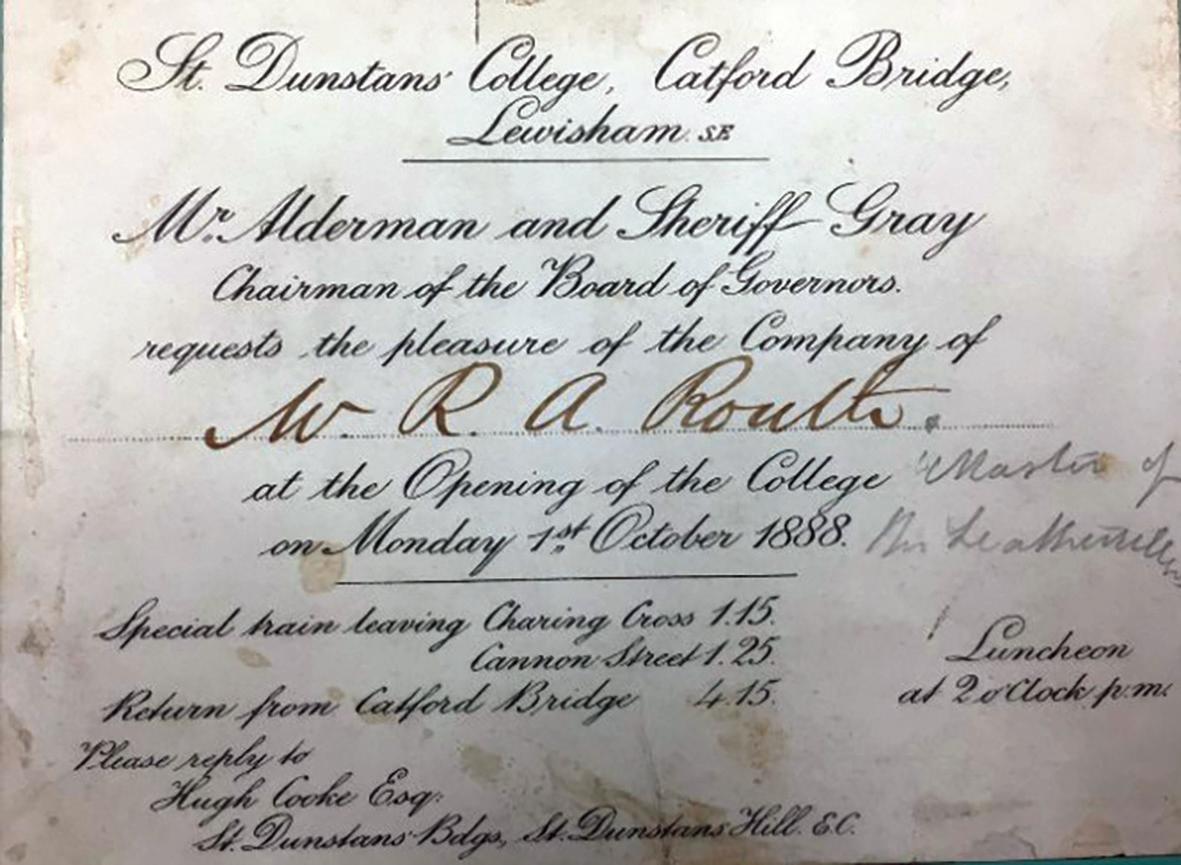 St. Dunstans' College, Catford Bridge,
Lewisham. S.E
Mr. Alderman and Sheriff Gray
Chairman of the Board of Governors.
requests the pleasure of the Company of
R. A. Routh.
at the Opening of the College
Master of
on Monday 1st. October 1888.
Special train leaving Charing Cross 1.15.
Cannon Street 1.25.
Return from Catford Bridge 4.15.
Luncheon
at 2 o'Clock p.m.
Please reply to
Hugh Cooke Esq.
St. Dunstans Bdgs, St. Dunstans Hill. E.C.